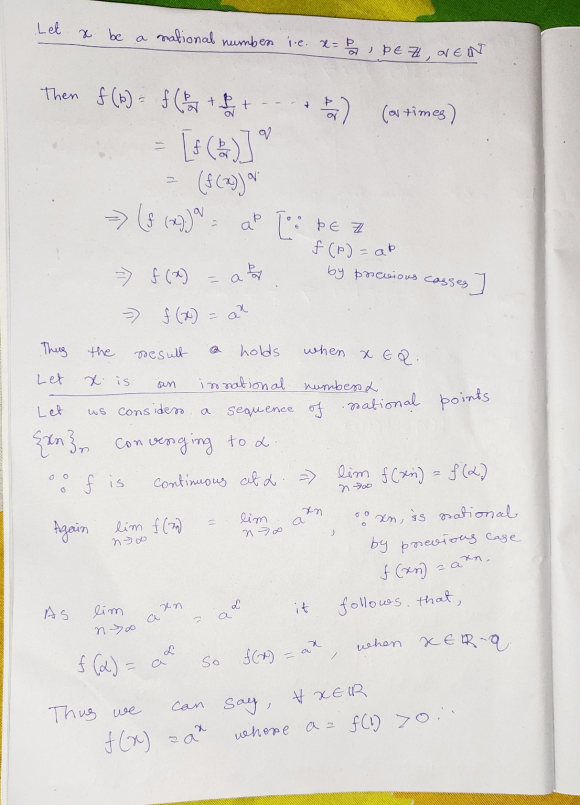 Let x be a rational number i.e. x = p/q, p ∈ ℤ, q ∈ ℕ
Then f(p) = f(p/q + p/q + - - - + p/q) (q times)
= [f(p/q)]^q
= (f(x))^q
⇒ (f(x))^q = a^p [∵ p ∈ ℤ
f(p) = a^p
by previous casses]
⇒ f(x) = a^(p/q)
⇒ f(x) = a^x
Thus the result holds when x ∈ Q.
Let x is an irrational number α
Let us consider a sequence of rational points
{xn}n converging to α.
∵ f is continuous at α ⇒ lim n→∞ f(xn) = f(α)
Again lim n→∞ f(xn) = lim n→∞ a^xn, ∵ xn, is rational
by previous case
f(xn) = a^xn.
As lim n→∞ a^xn = a^α it follows that,
f(α) = a^α so f(x) = a^x, when x ∈ ℝ-Q
Thus we can say, ∀ x ∈ ℝ
f(x) = a^x where a = f(1) > 0 ∴